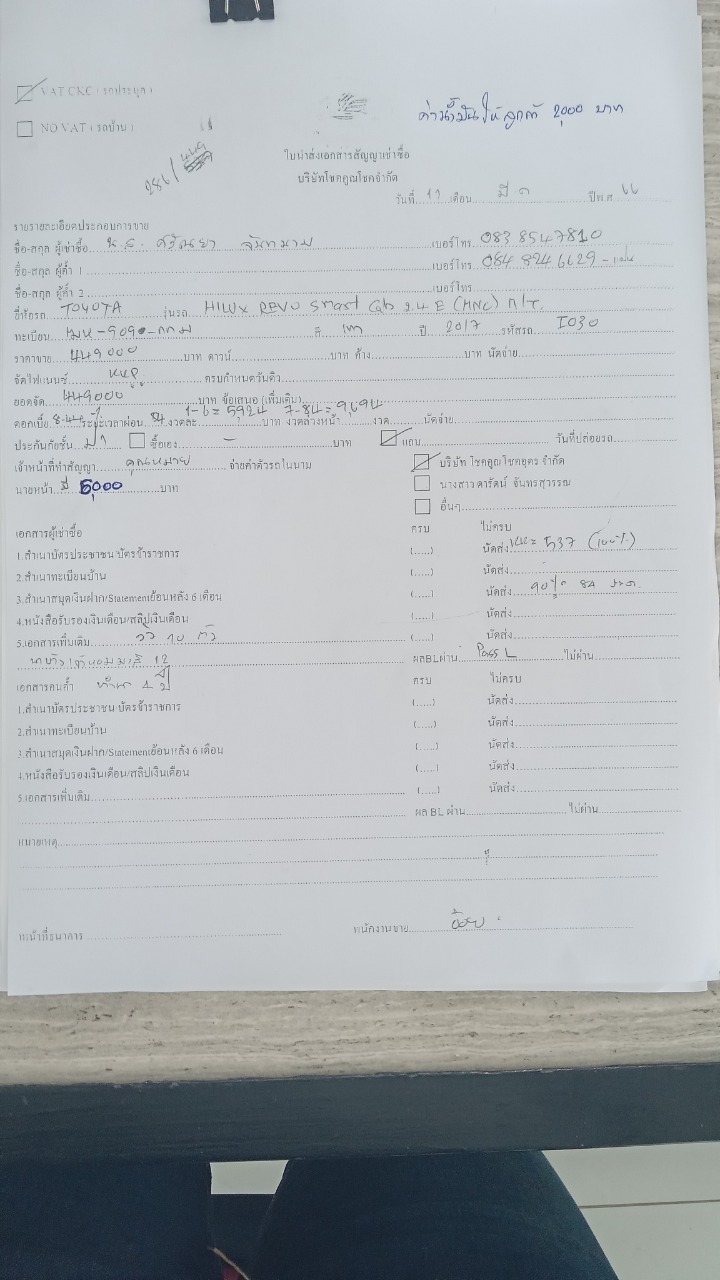 VAT CKC ( รถประมูล )
ค่าน้ำมันให้ลูกค้า 2,000 บาท
NO VAT ( รถบ้าน )
286/449
ใบนำส่งเอกสารสัญญาเช่าซื้อ
บริษัทโชคคูณโชคจำกัด
วันที่ 19 เดือน มี.ค ปีพ.ศ. 66
รายรายละเอียดประกอบการขาย
ชื่อ-สกุล ผู้เช่าซื้อ น.ส. เบอร์โทร. 083 8547810
ชื่อ-สกุล ผู้ค้ำ 1 เบอร์โทร. 084 8246629 - แฟน
ชื่อ-สกุล ผู้ค้ำ 2 เบอร์โทร.
ยี่ห้อรถ TOYOTA รุ่นรถ HILUX REVO Smart Cab 2.4 E (MNC) M/T.
ทะเบียน สี เทา ปี 2017 รหัสรถ I030
ราคาขาย 449000 บาท ดาวน์ บาท ค้าง บาท นัดจ่าย
จัดไฟแนนซ์ KKP ครบกำหนดวันคิว
ยอดจัด 449000 บาท ข้อเสนอ (เพิ่มเติม)
1-6 = 5924 7-84 = 9694
ดอกเบี้ย ระยะเวลาผ่อน 84 งวดละ บาท งวดล่วงหน้า งวด นัดจ่าย
ประกันภัยชั้น ซื้อเอง - บาท แถม วันที่ปล่อยรถ
เจ้าหน้าที่ทำสัญญา คุณหมาย จ่ายค่าตัวรถในนาม บริษัท โชคคูณโชคอุดร จำกัด
นายหน้า มี 5,000 บาท นางสาวดารัตน์ จันทรสุวรรณ
อื่นๆ
เอกสารผู้เช่าซื้อ ครบ ไม่ครบ
1.สำเนาบัตรประชาชน/บัตรข้าราชการ (.....) นัดส่ง = 537 (100%)
2.สำเนาทะเบียนบ้าน (.....) นัดส่ง
3.สำเนาสมุดเงินฝาก/Statementย้อนหลัง 6 เดือน (.....) นัดส่ง 90% 84 งวด.
4.หนังสือรับรองเงินเดือน/สลิปเงินเดือน (.....) นัดส่ง
5.เอกสารเพิ่มเติม วัว 10 ตัว (.....) นัดส่ง
ผลBLผ่าน Pass L ไม่ผ่าน
เอกสารคนค้ำ ครบ ไม่ครบ
1.สำเนาบัตรประชาชน/บัตรข้าราชการ (.....) นัดส่ง
2.สำเนาทะเบียนบ้าน (.....) นัดส่ง
3.สำเนาสมุดเงินฝาก/Statementย้อนหลัง 6 เดือน (.....) นัดส่ง
4.หนังสือรับรองเงินเดือน/สลิปเงินเดือน (.....) นัดส่ง
5.เอกสารเพิ่มเติม (.....) นัดส่ง
ผล BL ผ่าน ไม่ผ่าน
หมายเหตุ
จนท.ธนาคาร พนักงานขาย